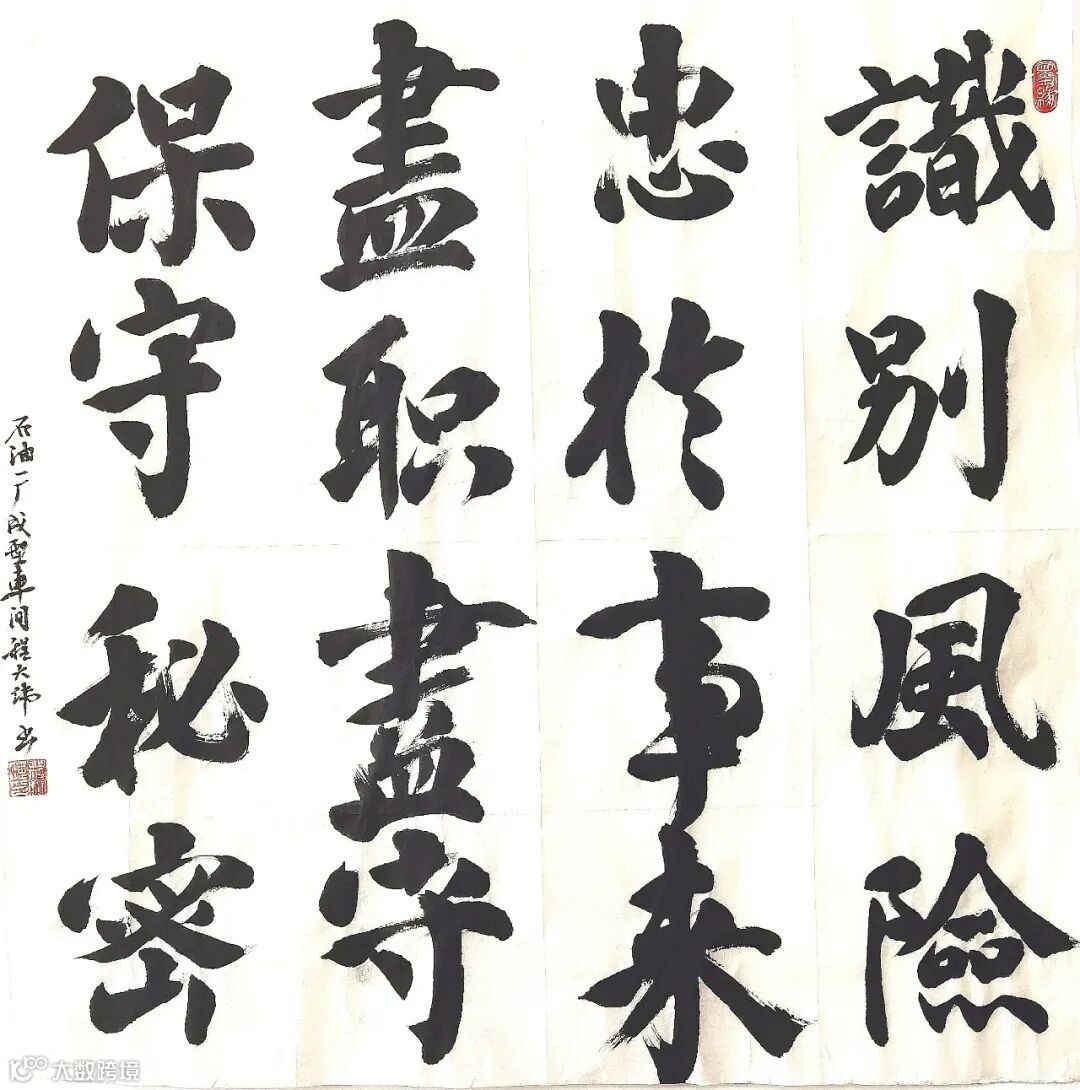 識别風險
忠於事来
盡职盡守
保守秘密
石油一厂成型車间程大伟书
大数跨境